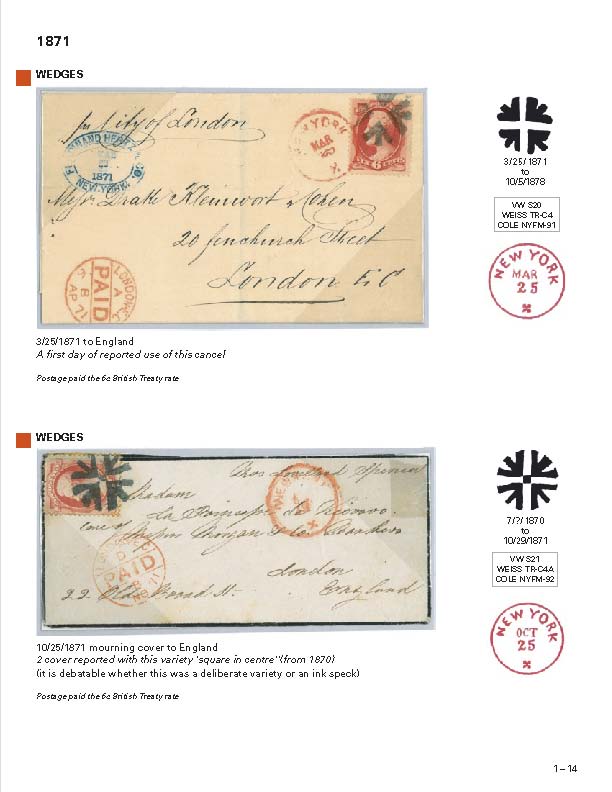 1871
WEDGES
per City of London
NEW YORK
MAR
1871
NEW-YORK.
6 CENTS
Messrs Drake Kleinwort & Cohen
20 Fenchurch Street
London E.C
LONDON E.C
A
PAID
3/25/1871
to
10/5/1878
VW S20
WEISS TR-C4
COLE NYFM-91
NEW YORK
MAR
25
3/25/1871 to England
A first day of reported use of this cancel
Postage paid the 6c British Treaty rate
WEDGES
Madam
La Principessa de
care of
London
22 Old Broad St.
England
PAID
7/?/1870
to
10/29/1871
VW S21
WEISS TR-C4A
COLE NYFM-92
NEW YORK
OCT
25
10/25/1871 mourning cover to England
2 cover reported with this variety 'square in centre" (from 1870)
(it is debatable whether this was a deliberate variety or an ink speck)
Postage paid the 6c British Treaty rate
1 – 14